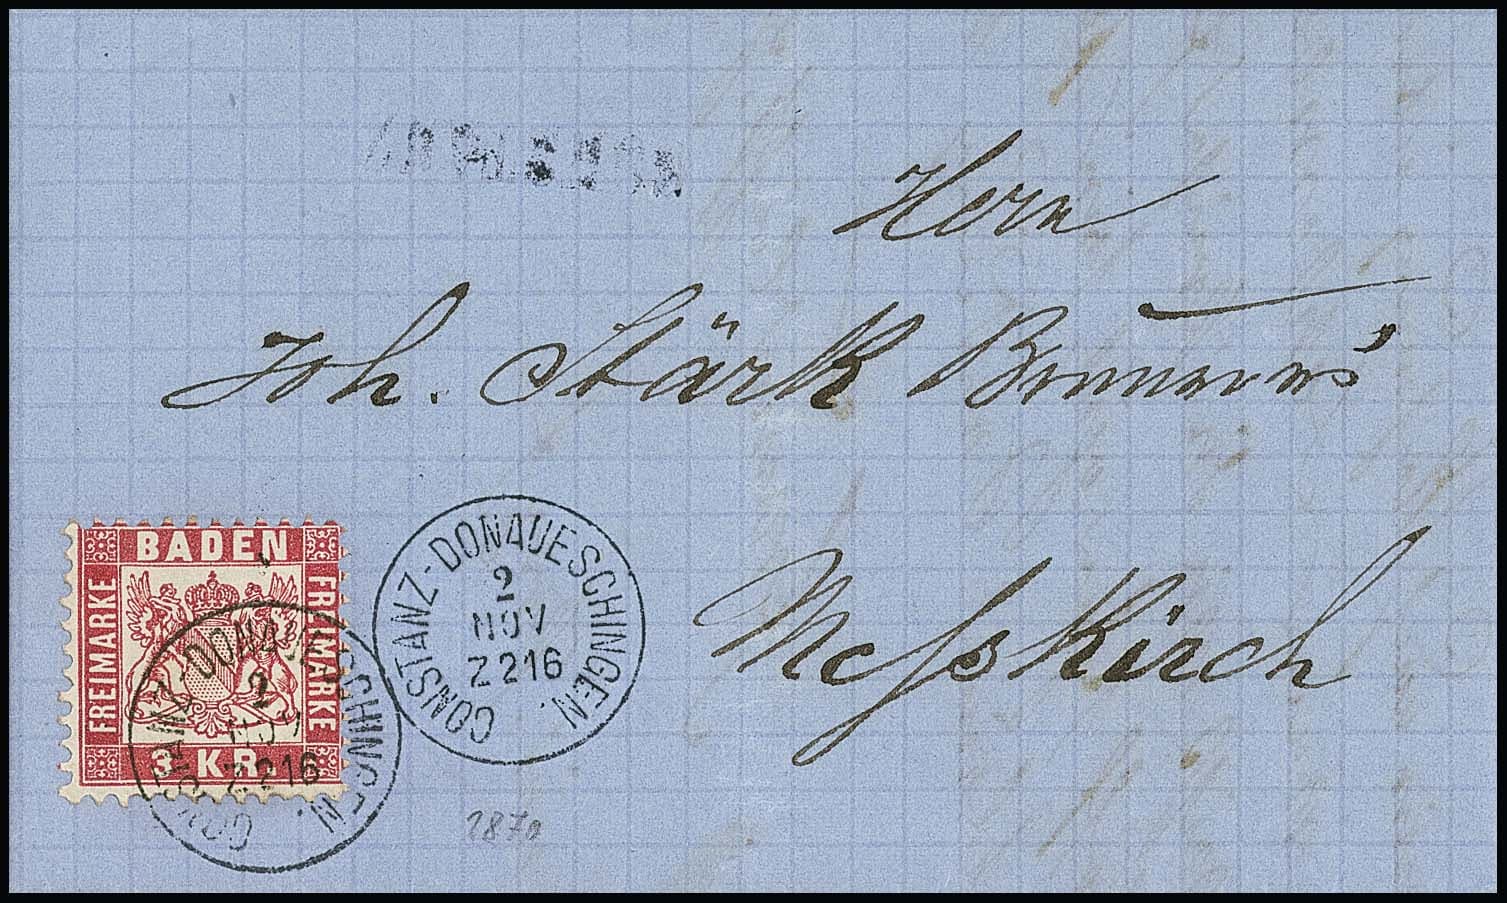 Herrn
Joh. Stärk
Messkirch
BADEN
FREIMARKE
FREIMARKE
3 KR.
CONSTANZ-DONAUESCHINGEN.
2
NOV
Z 216
CONSTANZ-DONAUESCHINGEN.
2
NOV
Z 216
1870